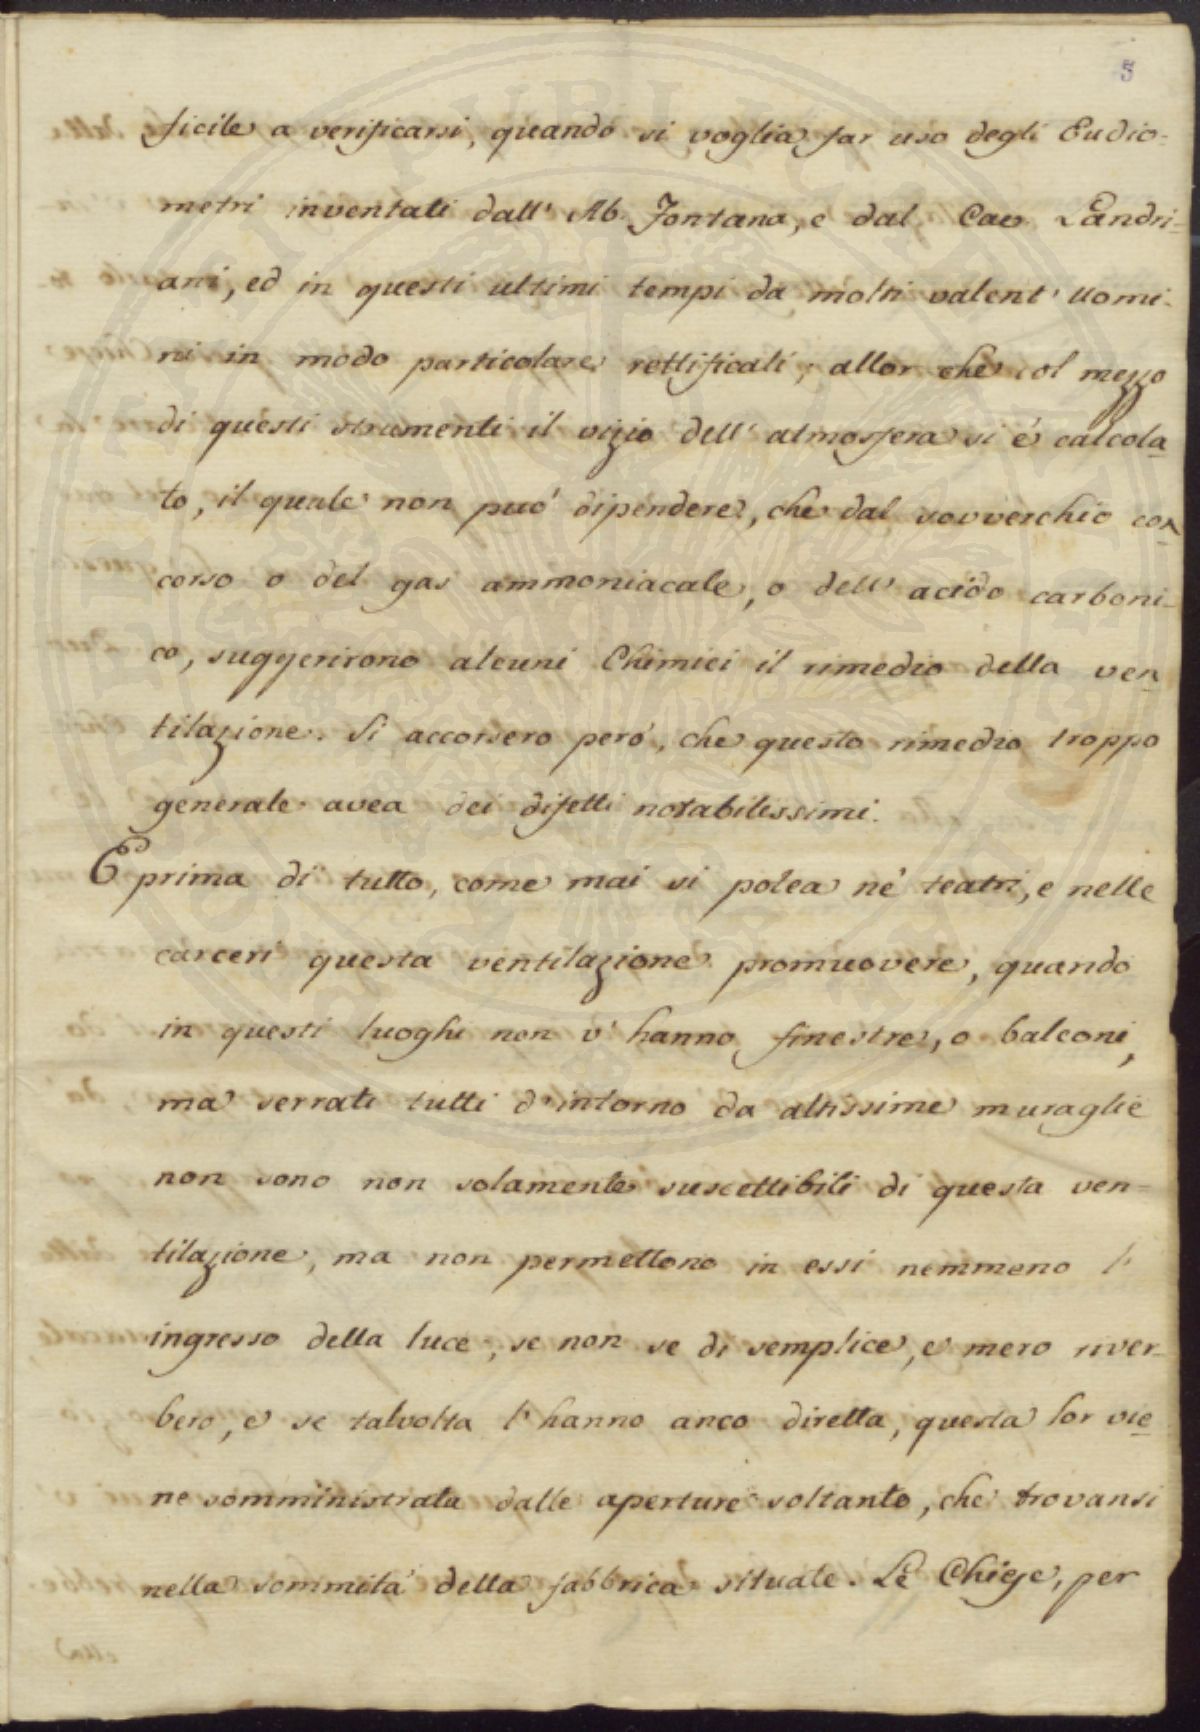 5
ficile a verificarsi, quando si voglia far uso degli Eudio-
metri inventati dall' Ab. Fontana, e dal Cav. Landri-
ani, ed in questi ultimi tempi da molti valent' uomi-
ni in modo particolare rettificati; allor che col mezzo
di questi strumenti il vizio dell' atmosfera si è calcola-
to, il quale non può dipendere, che dal sovverchio con-
corso o del gas ammoniacale, o dell' acido carboni-
co, suggerirono alcuni Chimici il rimedio della ven-
tilazione. Si accorsero però, che questo rimedio troppo
generale avea dei difetti notabilissimi.
E prima di tutto, come mai si potea nè teatri, e nelle
carceri questa ventilazione promuovere, quando
in questi luoghi non v' hanno finestre, o balconi,
ma serrati tutti d'intorno da altissime muraglie
non sono non solamente suscettibili di questa ven-
tilazione, ma non permettono in essi nemmeno l'
ingresso della luce, se non se di semplice, e mero river-
bero, e se talvolta l' hanno anco diretta, questa lor vie-
ne somministrata dalle aperture soltanto, che trovansi
nella sommità della fabbrica situate. Le Chiese, per